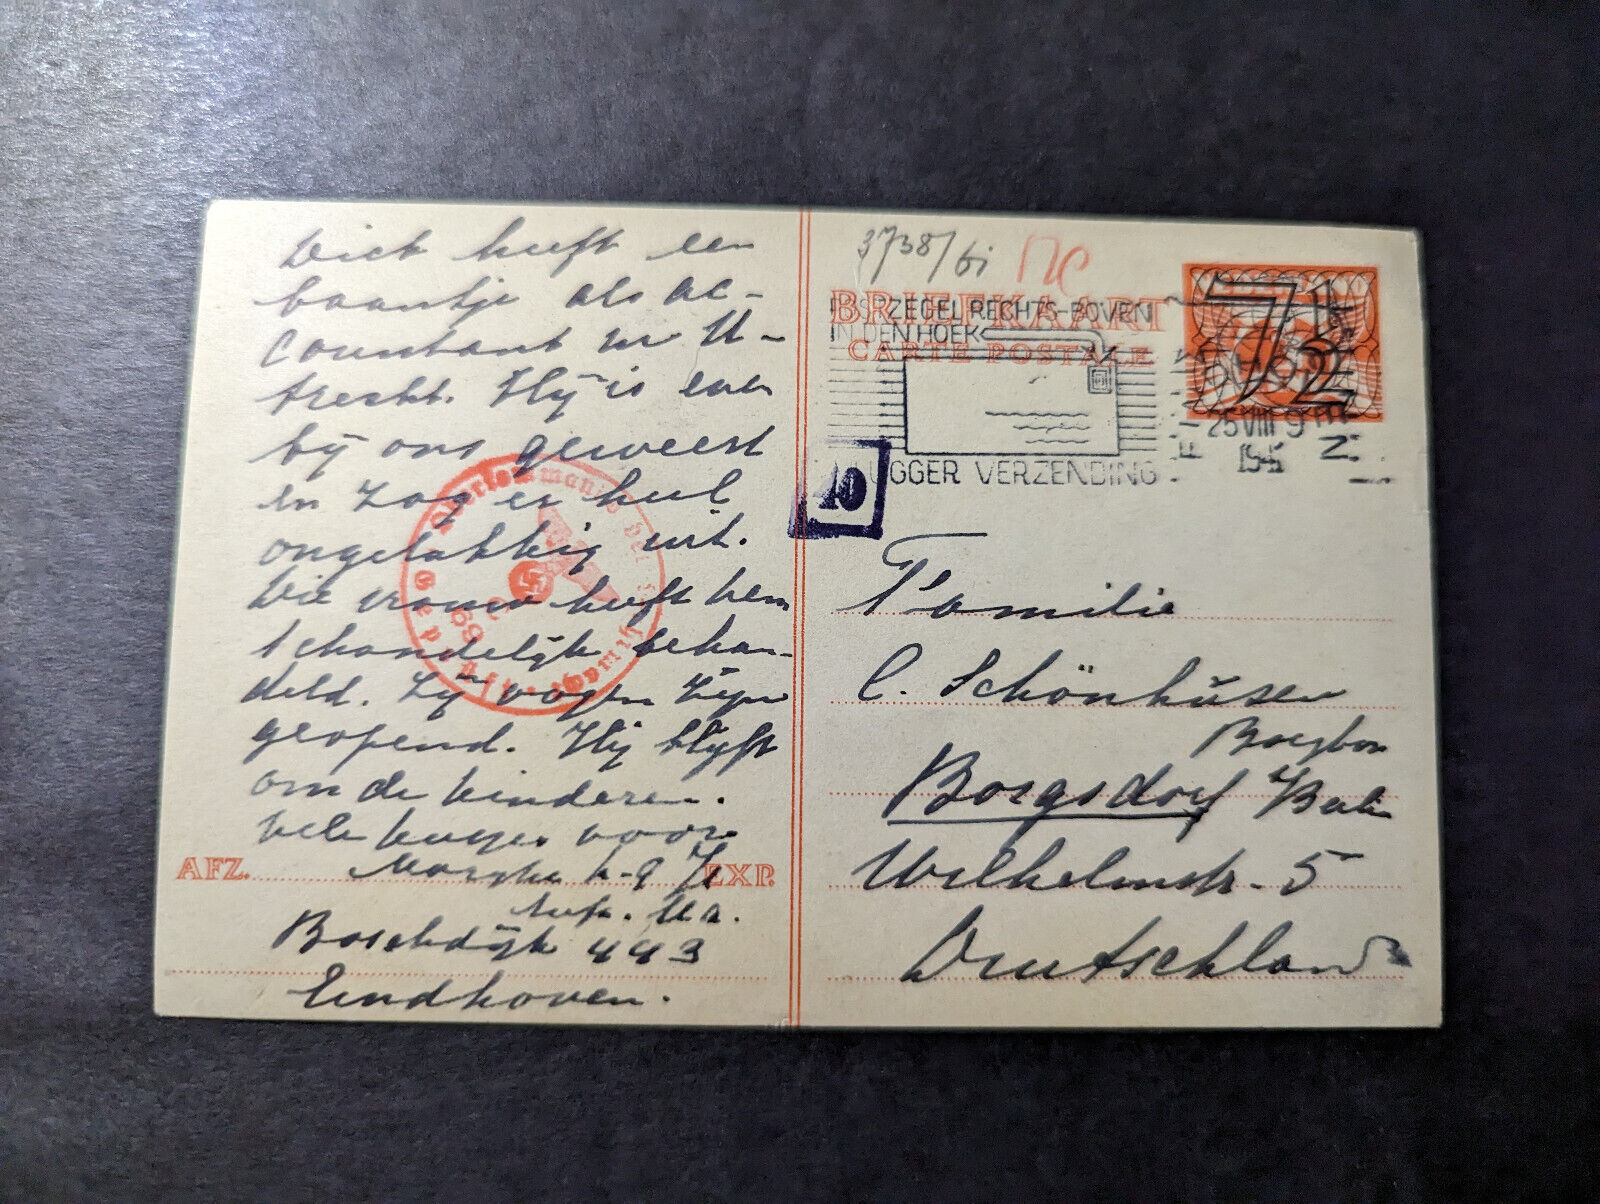 Dick heeft een
baantje als ac-
countant in U-
trecht. Hij is even
bij ons geweest
en zag er heel
ongelukkig uit.
Die vrouw heeft hem
schandelijk behan-
deld. Zij'n oogen zijn
geopend. Hij blijft
om de kinderen.
vele kusjes voor
AFZ. EXP.
Boschdijk 443
Eindhoven.
3738/6i
BRIEFKAART
CARTE POSTALE
POSTZEGEL RECHTS-BOVEN
IN DEN HOEK
VLUGGER VERZENDING
7½
25 VIII 9
194
40
Oberkommando der Wehrmacht
Geprüft
e
69
Familie
C. Schönhüsen
Borgsdorf
Wilhelmstr. 5
Deutschland